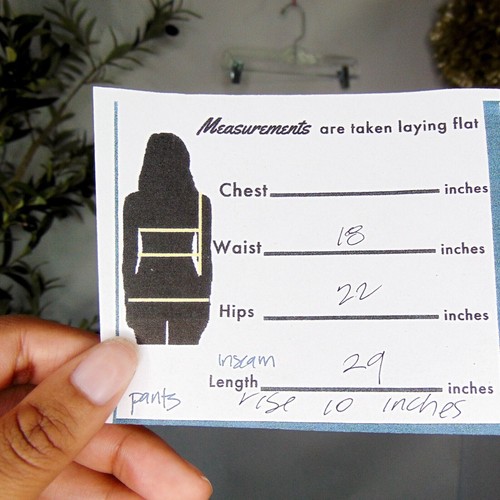 Measurements are taken laying flat
Chest inches
Waist 18 inches
Hips 22 inches
inseam
Length 29 inches
pants rise 10 inches